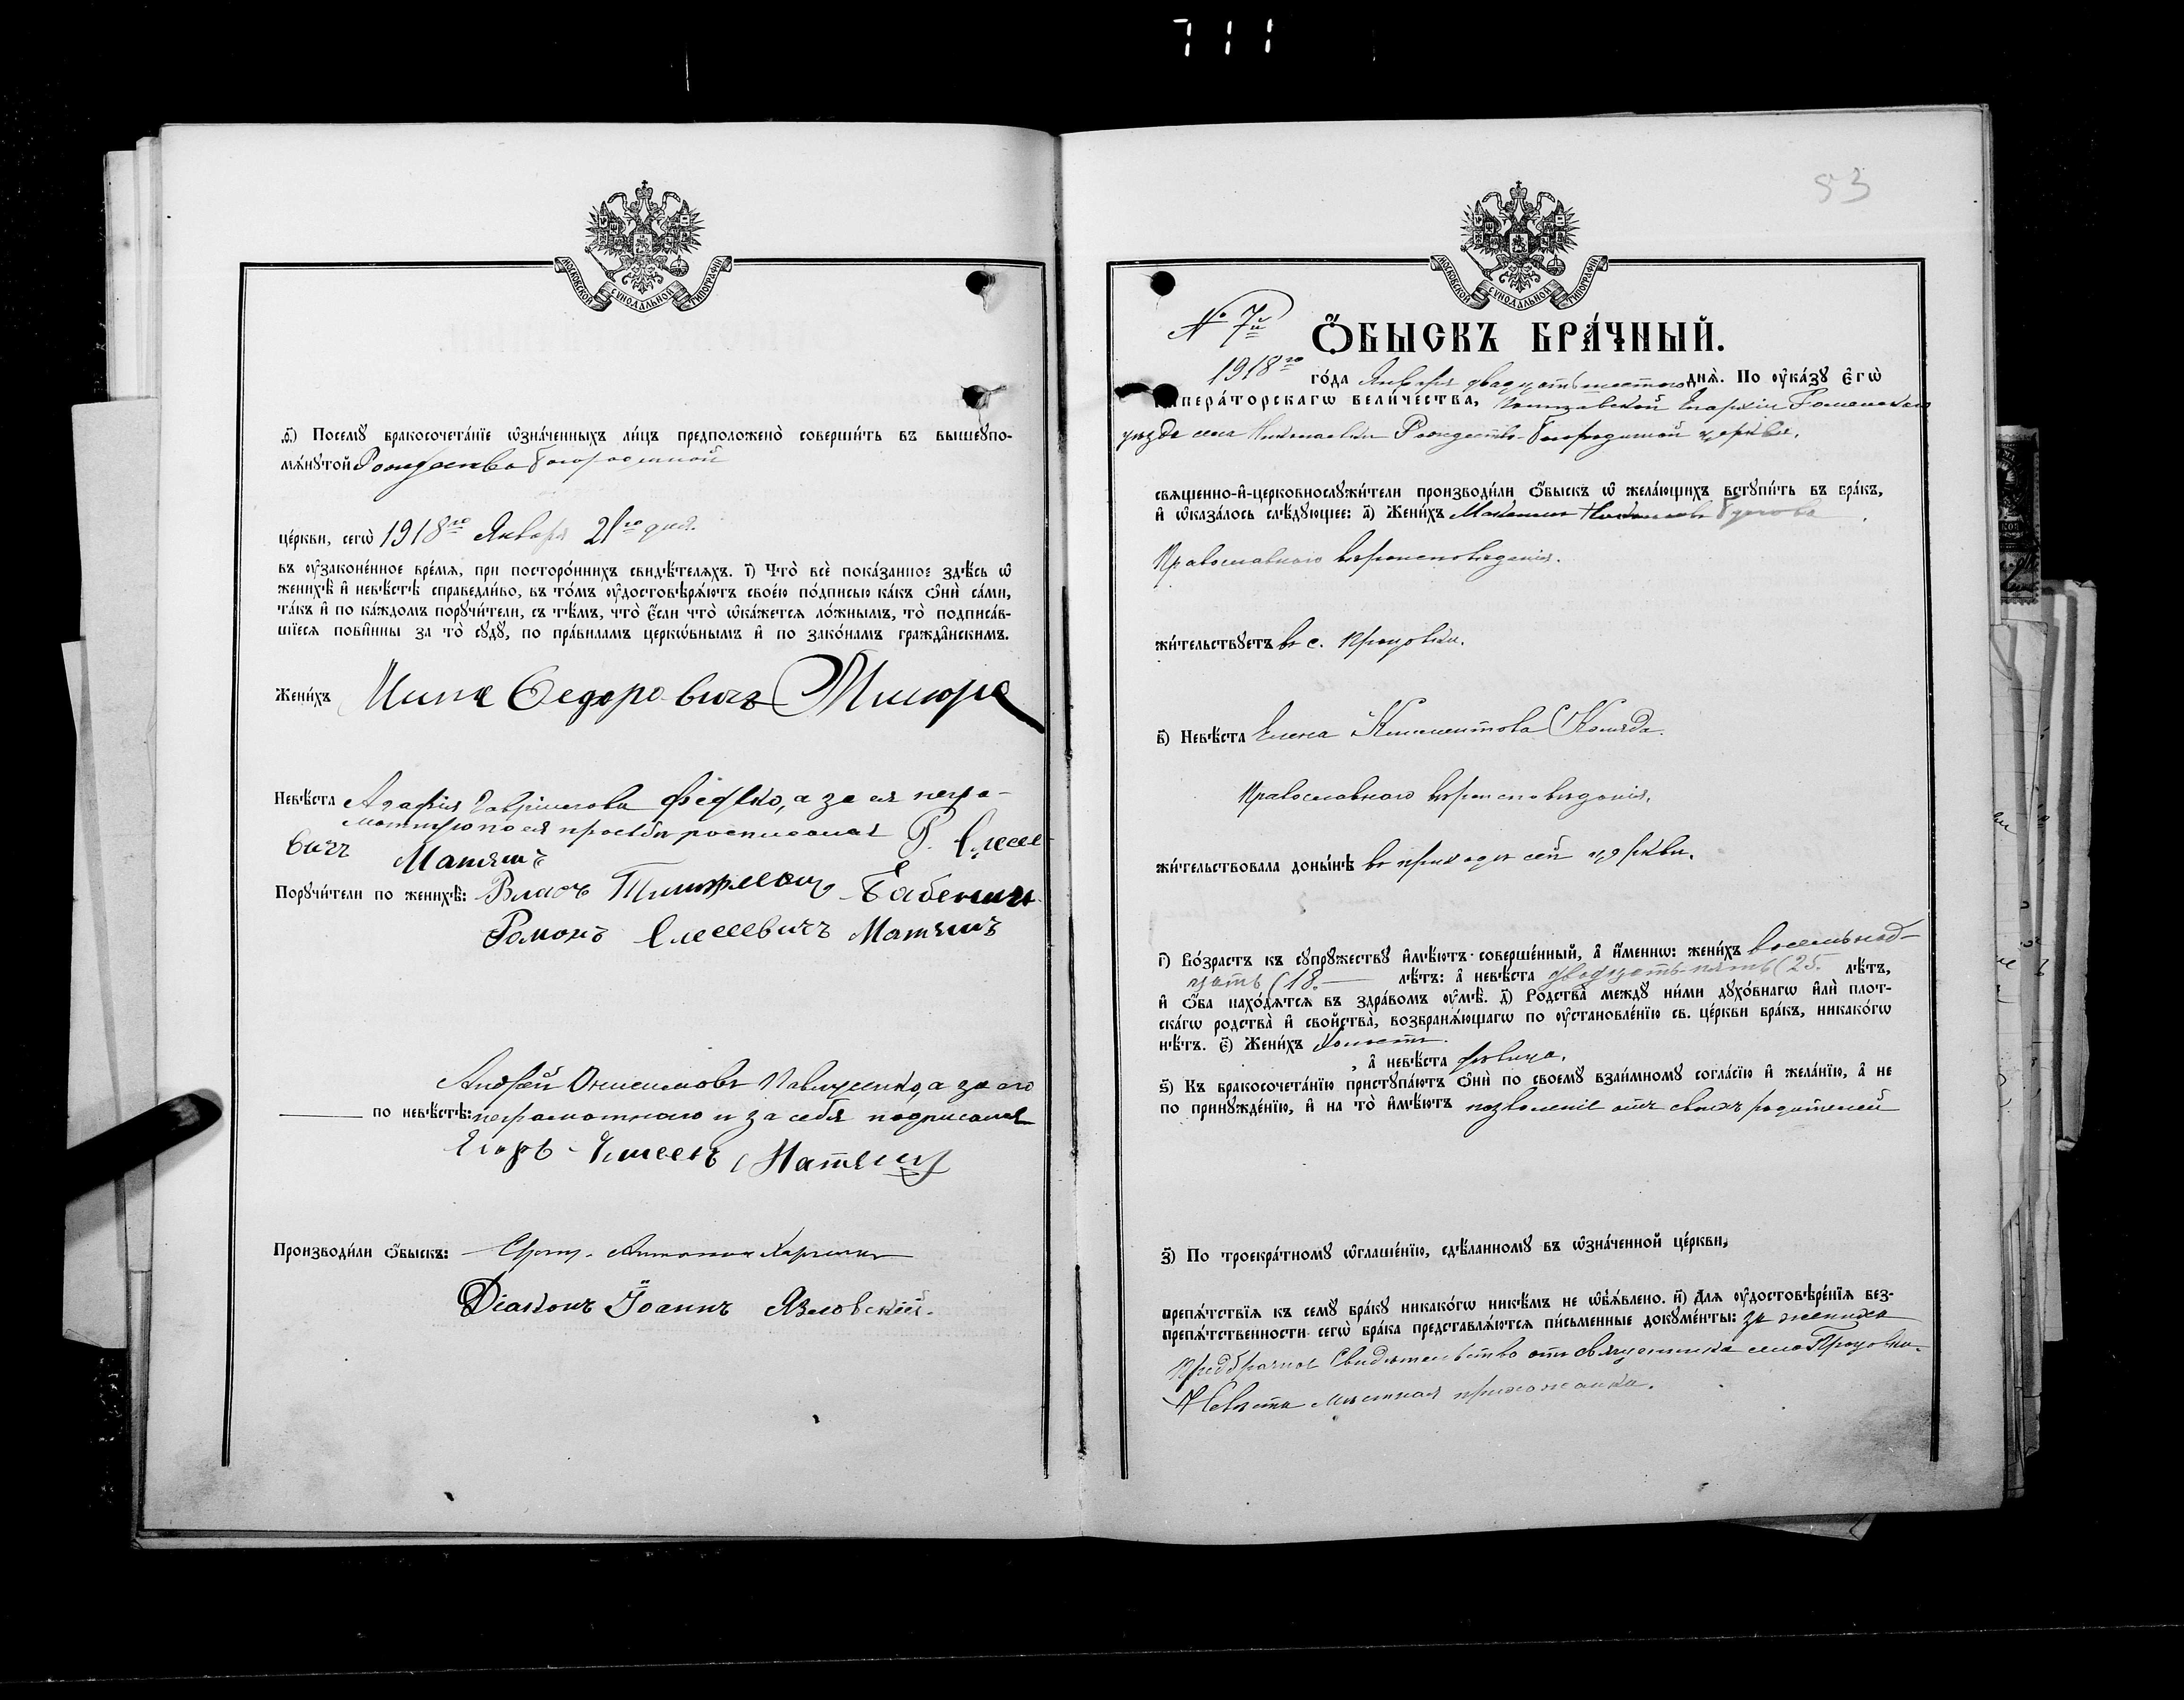 711
МОСКОВСКОЙ СѴНОДАЛЬНОЙ ТИПОГРАФІИ
ѳ҃) Посемꙋ бракосочета́нїе ѡ҆зна́ченныхъ ли́цъ предположено̀ соверши́ть въ вышеꙋпо-
мѧ́нꙋтой Рождество Богородичной
це́ркви, сегѡ̀ 1918го Января 21го дня.
въ ᲂу҆зако́ненное вре́мѧ, при посторо́ннихъ свидѣ́телѧхъ. і҃) Что̀ всѐ пока́занное здѣ́сь ѡ҆
женихѣ̀ и҆ невѣ́стѣ справедли́во, въ то́мъ ᲂу҆достовѣрѧ́ютъ свое́ю по́дписью ка́къ ѻ҆нѝ са́ми,
та́къ и҆ по ка́ждомъ порꙋчи́тели, съ тѣ́мъ, что̀ є҆́сли что̀ ѡ҆ка́жетсѧ ло́жнымъ, то̀ подписа́в-
шїесѧ пови́нны за то̀ сꙋдꙋ̀, по пра́виламъ церкѡ́внымъ и҆ по зако́намъ гражда́нскимъ.
Жени́хъ Федоровичъ
Невѣ́ста Агафія Гавріилова Федько, а за ея негра-
мотную по ея просьбѣ росписался Р. Елесее-
вичъ Матяшъ
Порꙋчи́тели по женихѣ̀: Власъ Бабенко
Романъ Елесеевичъ Матяшъ
Андрей Онисимовъ Павлущенко, а за его
по невѣ́стѣ: неграмотнаго и за себя подписался
Егоръ Матяшъ
Производи́ли ѻ҆́быскъ:
Діаконъ Іоаннъ Язловскій.
53
МОСКОВСКОЙ СѴНОДАЛЬНОЙ ТИПОГРАФІИ
№ 7й
Ѻ҆́БЫСКЪ БРА́ЧНЫЙ.
1918го го́да Января двадцать шестого днѧ̀. По ᲂу҆ка́зꙋ є҆гѡ̀
и҆мпера́торскагѡ вели́чества, Полтавской Епархіи Роменскаго
уѣзда села Николаевки Рождество-Богородичной церкви,
свѧще́нно-и҆-церковнослꙋжи́тели производи́ли ѻ҆́быскъ ѡ҆ жела́ющихъ встꙋпи́ть въ бра́къ,
и҆ ѡ҆каза́лось слѣ́дꙋющее: а҃) Жени́хъ
Православнаго вѣроисповѣданія.
жи́тельствꙋетъ въ с. Процовки.
в҃) Невѣ́ста Елена Климентова Коляда.
Православнаго вѣроисповѣданія,
жи́тельствовала доны́нѣ въ приходѣ сей церкви.
г҃) Во́зрастъ къ сꙋпрꙋ́жествꙋ и҆мѣ́ютъ соверше́нный, а҆ и҆́меннѡ: жени́хъ восемьнад-
цать (18. лѣ́тъ: а҆ невѣ́ста двадцать пять (25. лѣ́тъ,
и҆ ѻ҆́ба нахо́дѧтсѧ въ здра́вомъ ᲂу҆мѣ̀. д҃) Родства̀ междꙋ̀ ни́ми дꙋхо́внагѡ и҆лѝ пло́т-
скагѡ родства̀ и҆ свойства̀, возбранѧ́ющагѡ по ᲂу҆становле́нїю св. це́ркви бра́къ, никако́гѡ
нѣ́тъ. є҃) Жени́хъ холостъ.
, а҆ невѣ́ста дѣвица.
ѕ҃) Къ бракосочета́нїю пристꙋпа́ютъ ѻ҆нѝ по своемꙋ̀ взаи́мномꙋ согла́сїю и҆ жела́нїю, а҆ не
по принꙋжде́нїю, и҆ на то̀ и҆мѣ́ютъ позволеніе отъ своихъ родителей
з҃) По троекра́тномꙋ ѡ҆глаше́нїю, сдѣ́ланномꙋ въ ѡ҆зна́ченной це́ркви,
препѧ́тствїѧ къ семꙋ̀ бра́кꙋ никако́гѡ никѣ́мъ не ѡ҆б̾ѧ́влено. и҃) Длѧ̀ ᲂу҆достовѣре́нїѧ без-
препѧ́тственности сегѡ̀ бра́ка представлѧ́ютсѧ пи́сьменные докꙋме́нты: за жениха
Предбрачное свидѣтельство отъ священника села Процовки.
Невѣста мѣстная прихожанка.